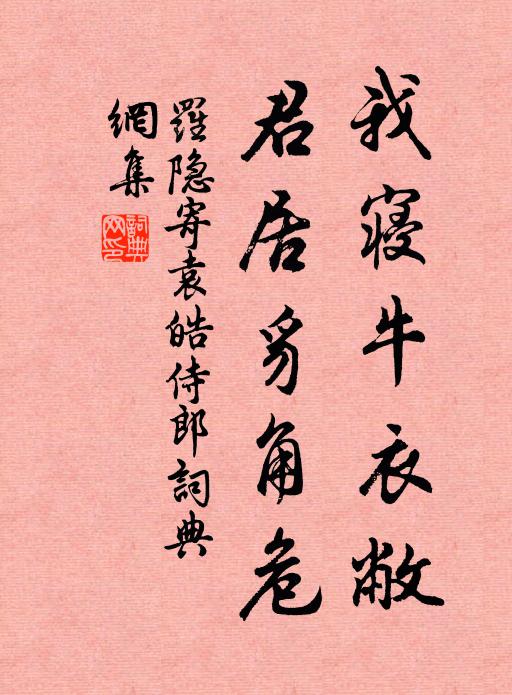 我寝牛衣敝
君居豸角危
羅隐寄袁皓侍郎詞典
網集
詞典網印